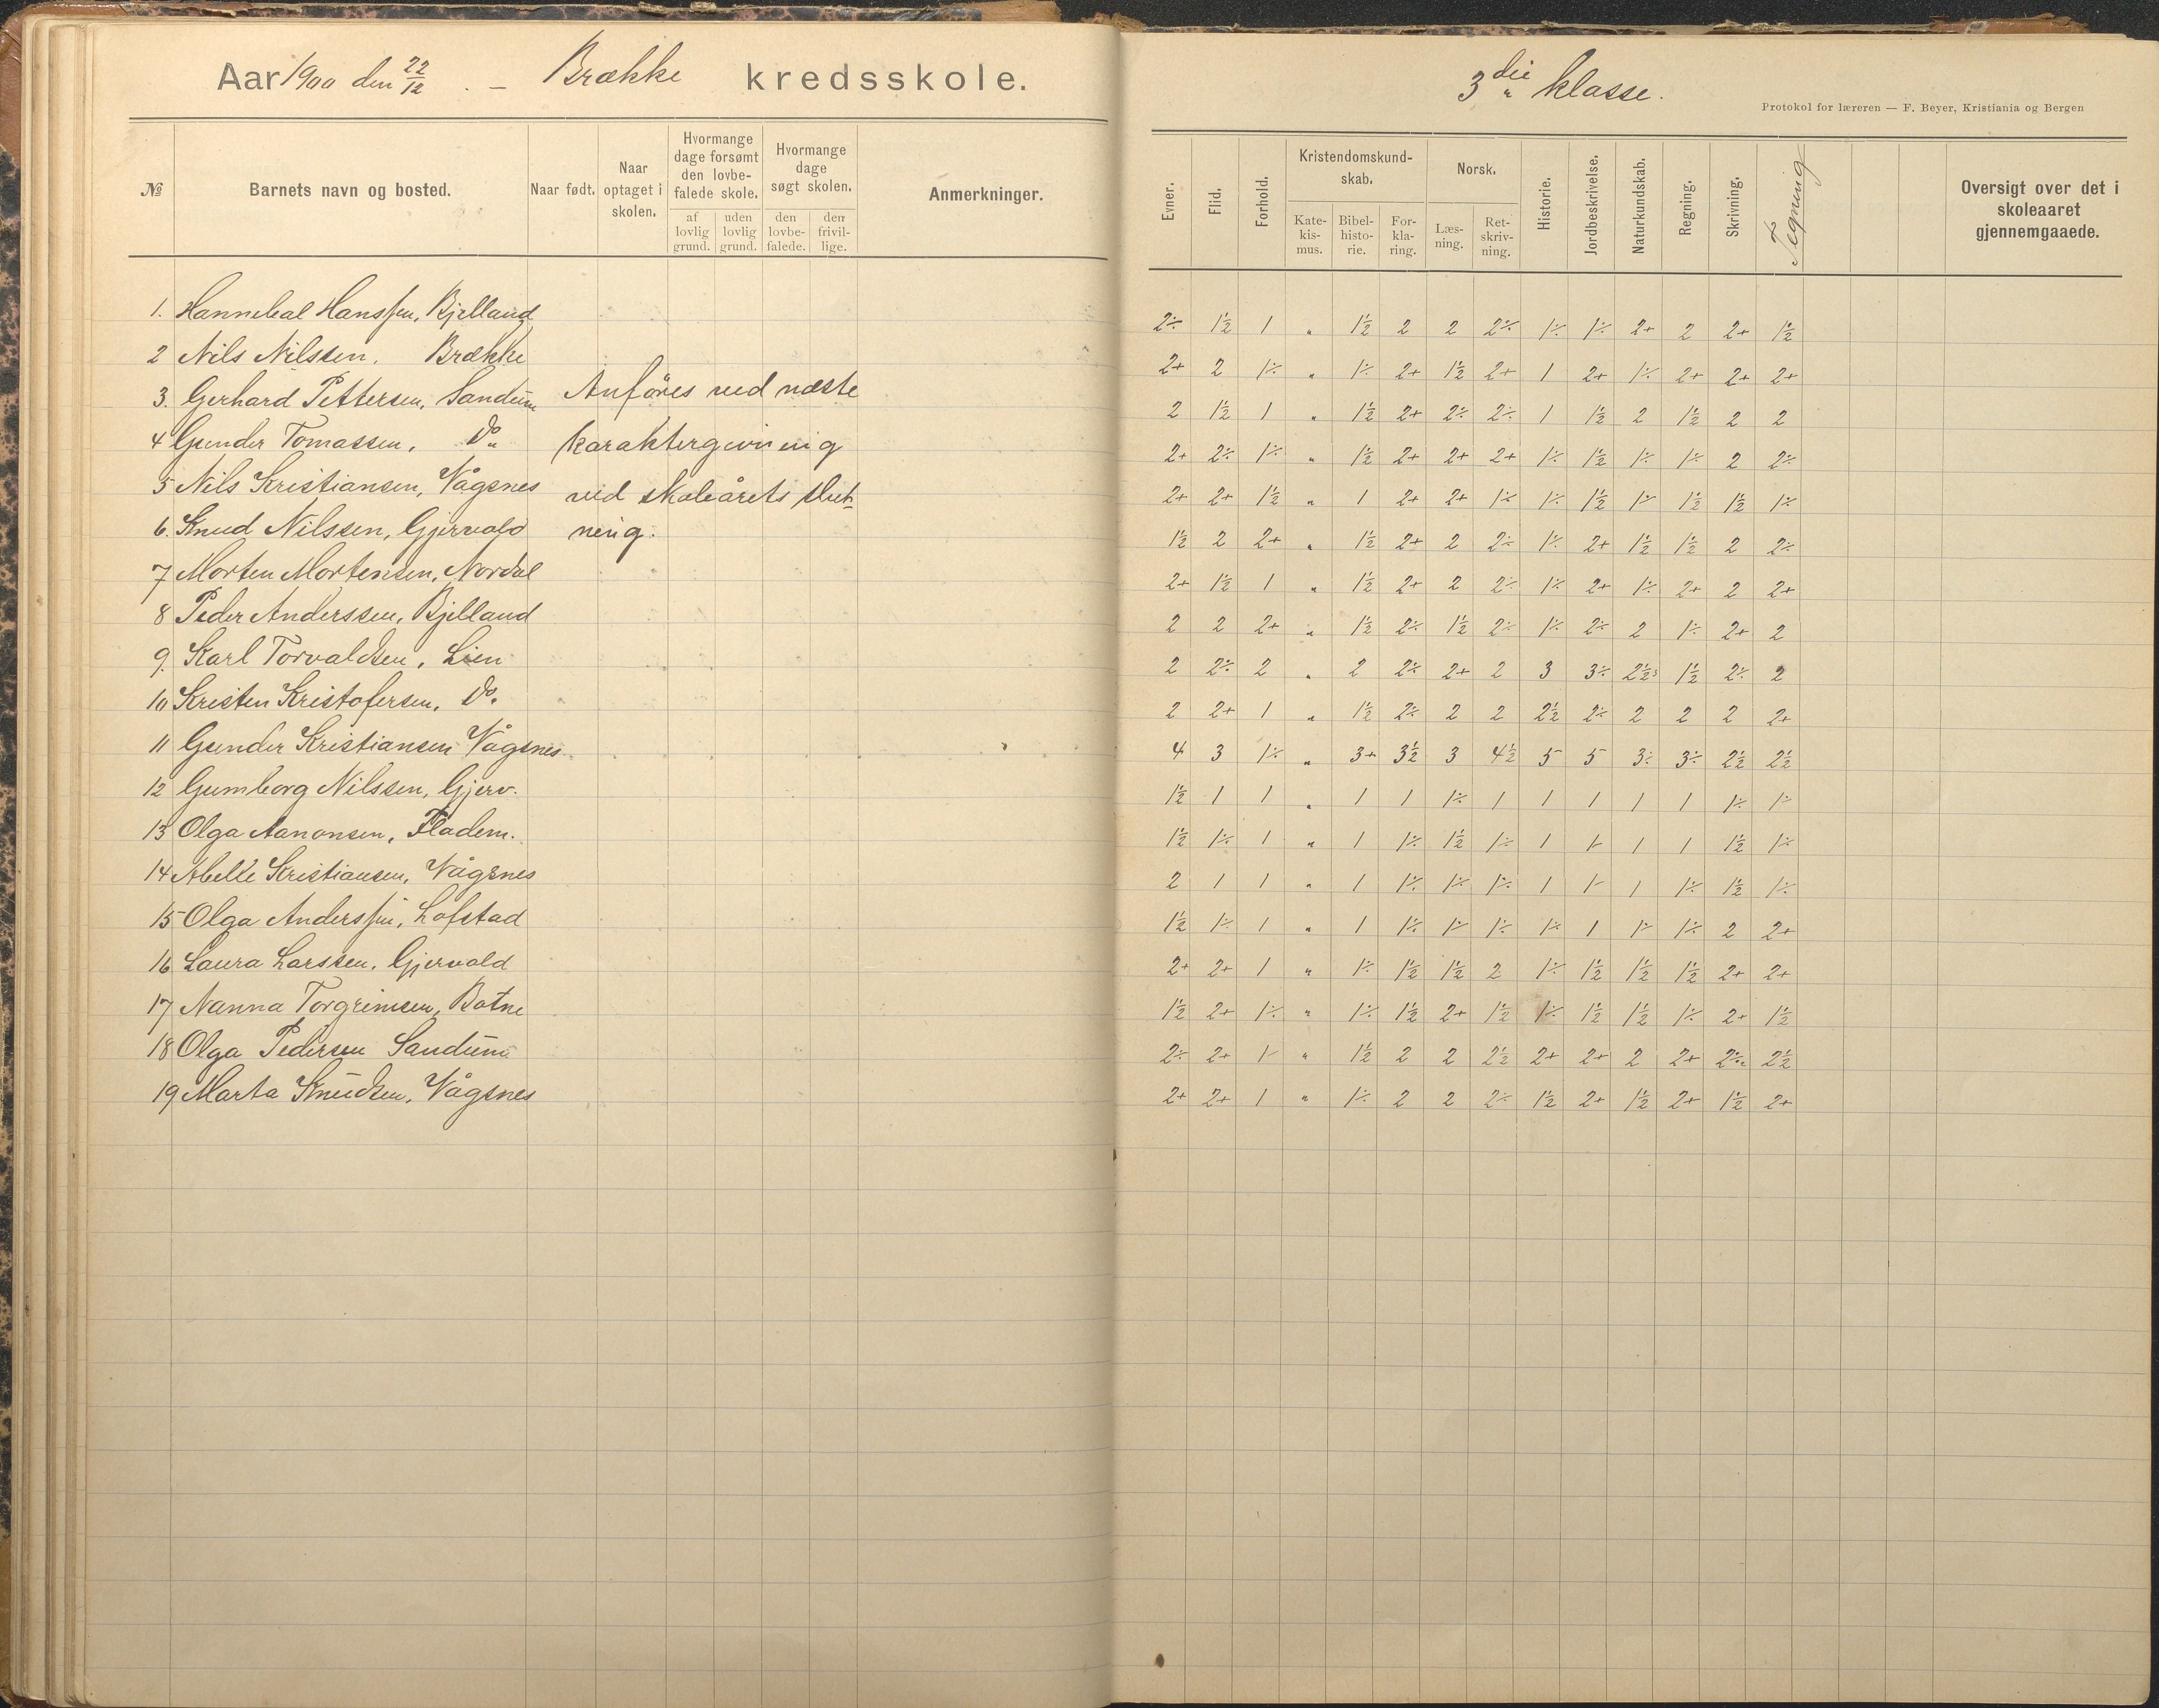 Aar 1900 den 22/12. – Brække kredsskole.
№
Barnets navn og bosted.
Naar født.
Naar optaget i skolen.
Hvormange dage forsømt den lovbefalede skole.
af lovlig grund.
uden lovlig grund.
Hvormange dage søgt skolen.
den lovbefalede.
den frivillige.
Anmerkninger.
1. Hannibal Hanssen, Bjelland
2 Nils Nilssen. Brække
3. Gerhard Pettersen, Sandum
4 Gunder Tomassen, Do
5 Nils Kristiansen, Vågsnes
6. Knud Nilssen, Gjervold
7 Morten Mortensen, Nordal
8 Peder Anderssen, Bjelland
9. Karl Torvaldsen, Lien
10 Kristen Kristofersen, Do.
11 Gunder Kristiansen Vågsnes
12 Gumborg Nilssen, Gjerv.
13 Olga Aanonsen, Fladem.
14 Abelle Kristiansen, Vågsnes
15 Olga Anderssen, Lofstad
16 Laura Larssen, Gjervold
17 Nanna Torgrimsen, Botne
18 Olga Pedersen Sandum
19 Marta Knudsen, Vågsnes
Anføres ved næste
karaktergivning
ved skoleårets slut-
ning.
3die klasse.
Protokol for læreren — F. Beyer, Kristiania og Bergen
Evner.
Flid.
Forhold.
Kristendomskundskab.
Katekismus.
Bibelhistorie.
Forklaring.
Norsk.
Læsning.
Retskrivning.
Historie.
Jordbeskrivelse.
Naturkundskab.
Regning.
Skrivning.
Tegning
Oversigt over det i skoleaaret gjennemgaaede.
2÷ 1½ 1 „ 1½ 2 2 2÷ 1÷ 1÷ 2+ 2 2+ 1½
2+ 2 1÷ „ 1÷ 2+ 1½ 2+ 1 2+ 1÷ 2+ 2+ 2+
2 1½ 1 „ 1½ 2+ 2÷ 2÷ 1 1½ 2 1½ 2 2
2+ 2÷ 1÷ „ 1½ 2+ 2+ 2+ 1÷ 1½ 1÷ 1÷ 2 2÷
2+ 2+ 1½ „ 1 2+ 2+ 1÷ 1÷ 1½ 1÷ 1½ 1½ 1÷
1½ 2 2+ „ 1½ 2+ 2 2÷ 1÷ 2+ 1½ 1½ 2 2÷
2+ 1½ 1 „ 1½ 2+ 2 2÷ 1÷ 2+ 1÷ 2+ 2 2+
2 2 2+ „ 1½ 2÷ 1½ 2÷ 1÷ 2÷ 2 1÷ 2+ 2
2 2÷ 2 „ 2 2÷ 2+ 2 3 3÷ 2½ 1½ 2÷ 2
2 2+ 1 „ 1½ 2÷ 2 2 2½ 2÷ 2 2 2 2+
4 3 1÷ „ 3+ 3½ 3 4½ 5 5 3÷ 3÷ 2½ 2½
1½ 1 1 „ 1 1 1÷ 1 1 1 1 1 1÷ 1÷
1½ 1÷ 1 „ 1 1÷ 1½ 1÷ 1 1÷ 1 1 1½ 1÷
2 1 1 „ 1 1÷ 1÷ 1÷ 1 1÷ 1 1÷ 1½ 1÷
1½ 1÷ 1 „ 1 1÷ 1÷ 1÷ 1÷ 1 1÷ 1÷ 2 2+
2+ 2+ 1 „ 1÷ 1½ 1½ 2 1÷ 1½ 1½ 1½ 2+ 2+
1½ 2+ 1÷ „ 1÷ 1½ 2+ 1½ 1÷ 1½ 1½ 1÷ 2+ 1½
2÷ 2+ 1÷ „ 1½ 2 2 2½ 2+ 2+ 2 2+ 2÷ 2½
2+ 2+ 1 „ 1÷ 2 2 2÷ 1½ 2+ 1½ 2+ 1½ 2+